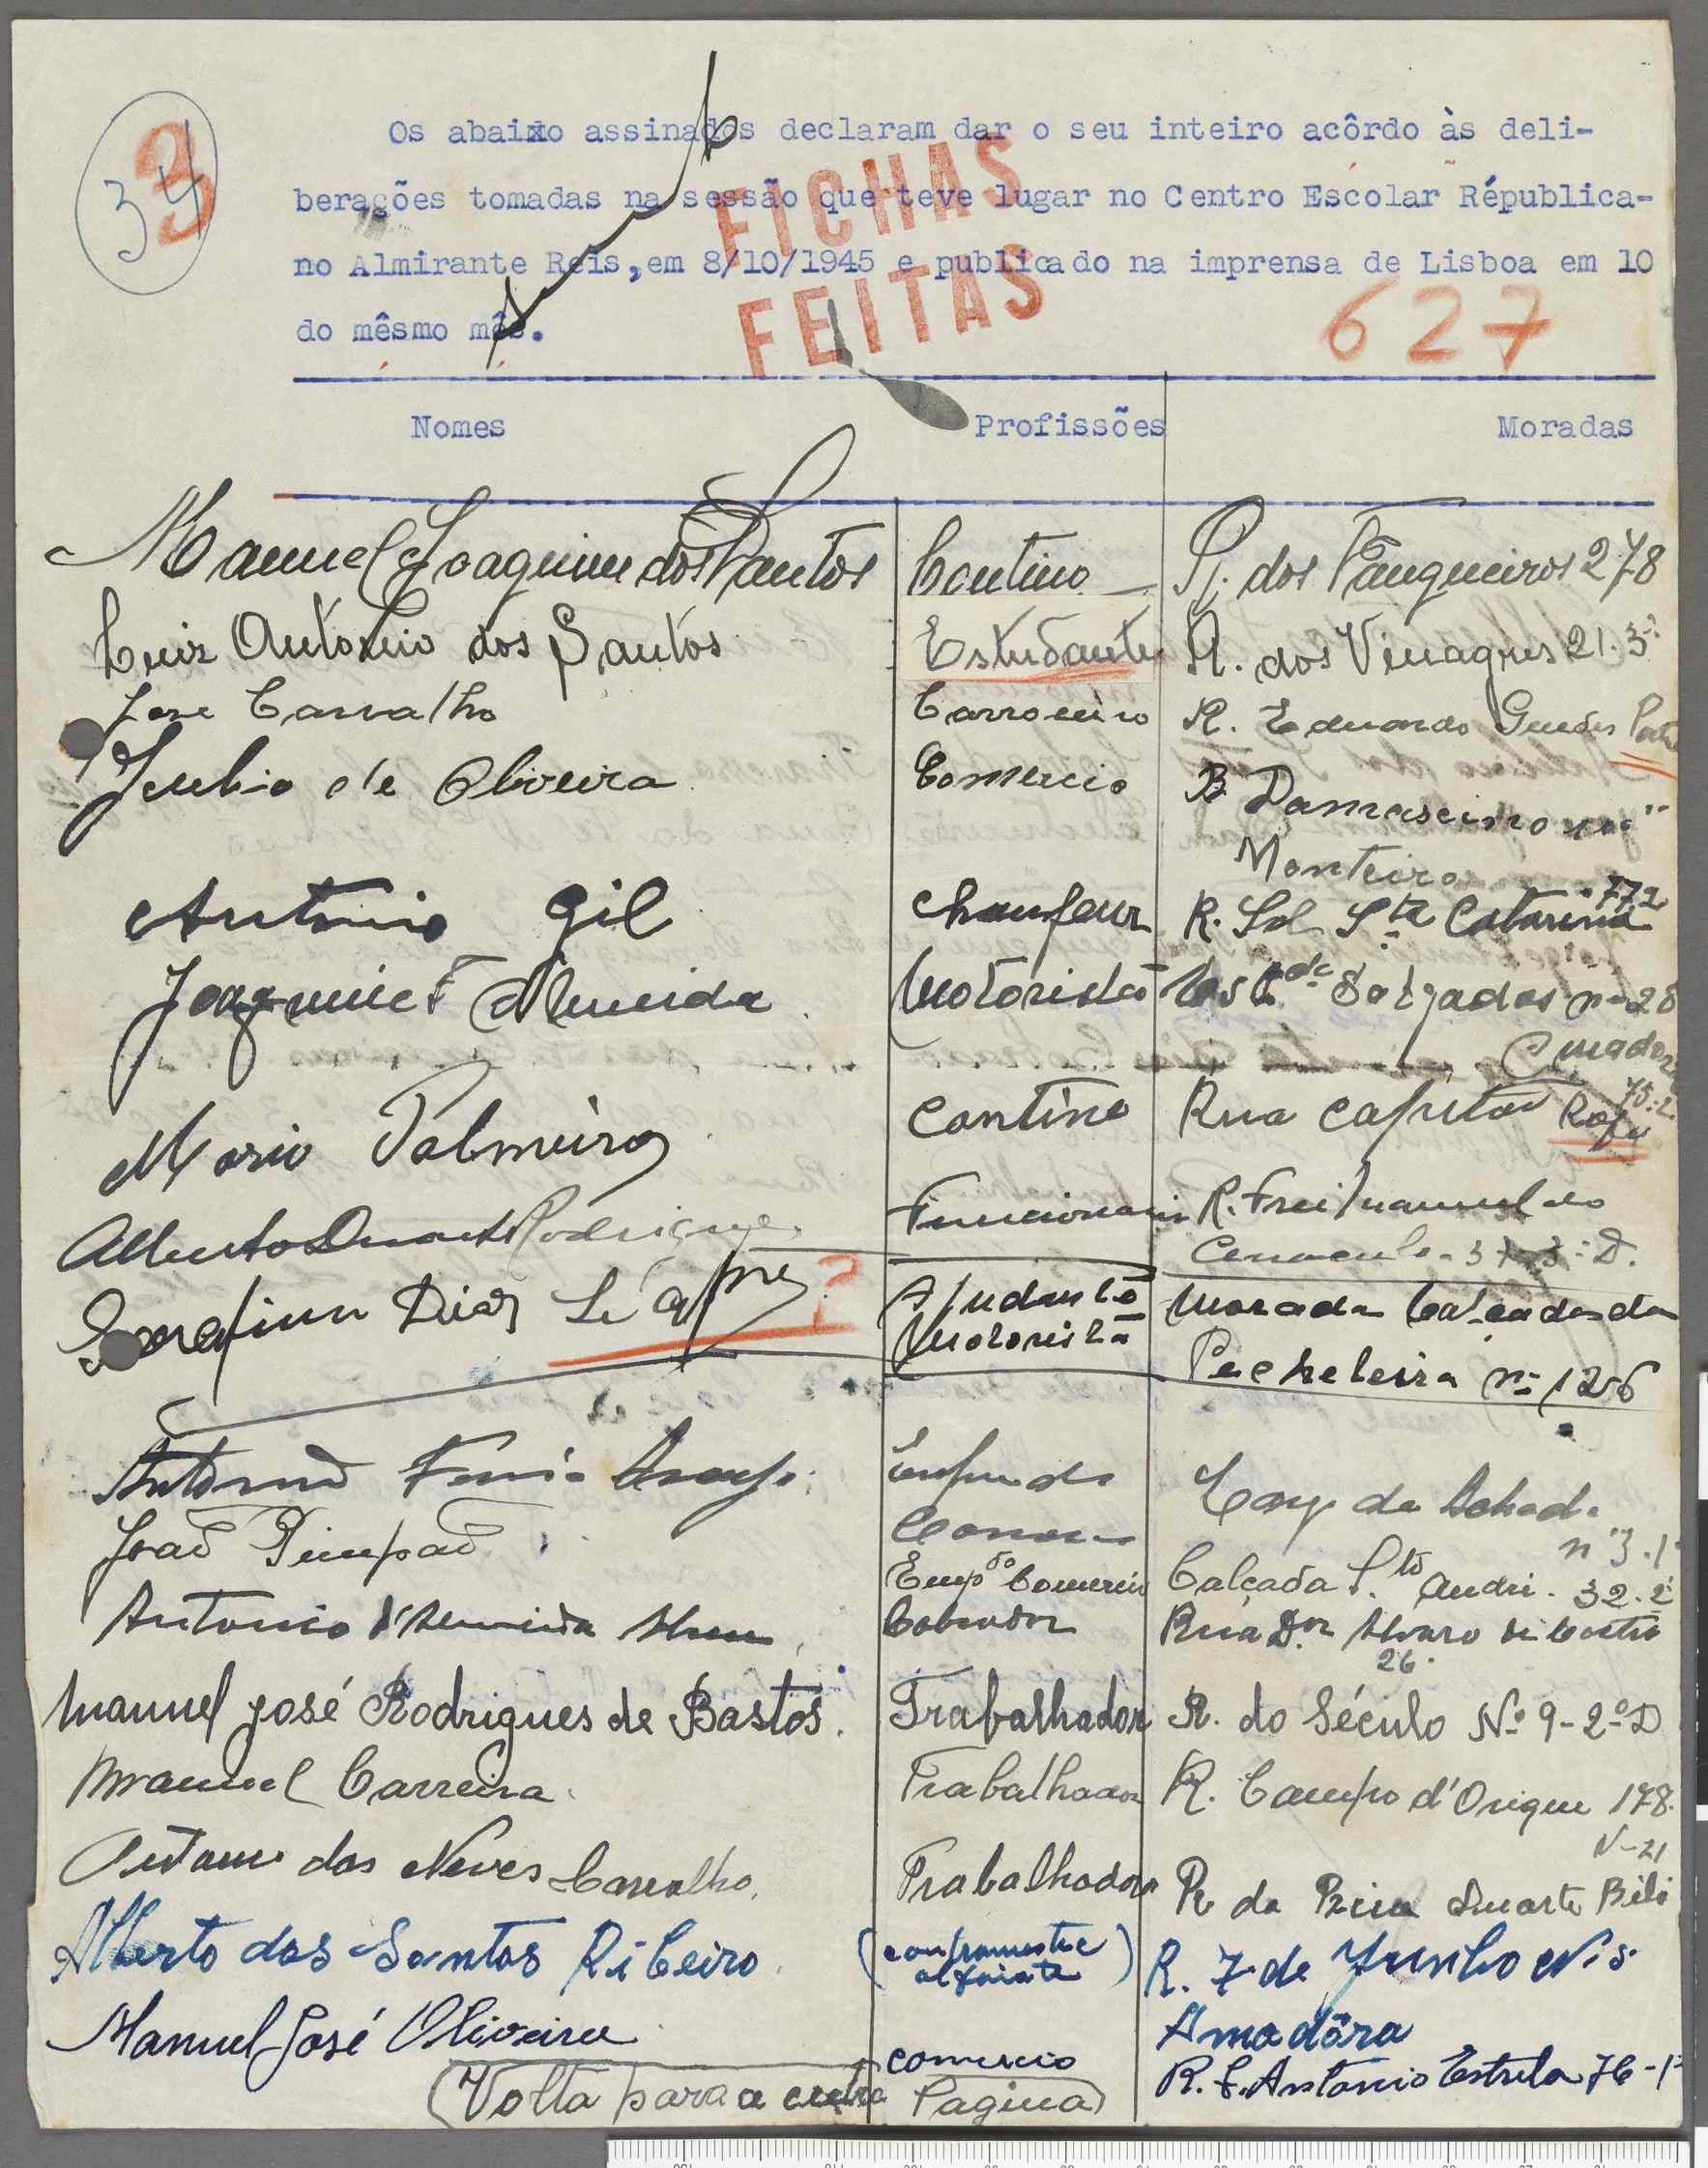 34
3
Os abaixo assinados declaram dar o seu inteiro acôrdo às deli-
berações tomadas na sessão que teve lugar no Centro Escolar Républica-
no Almirante Reis, em 8/10/1945 e publicado na imprensa de Lisboa em 10
do mêsmo mês.
FICHAS
FEITAS
627
Nomes Profissões Moradas
Manuel Joaquim dos Santos Contino R. dos Fanqueiros 278
Luiz António dos Santos Estudante R. dos Vinagres 21.3º
Jose Carvalho Carroceiro R. Eduardo Guedes
Julio de Oliveira Comercio R Damasceno
Monteiro
Antonio Gil Chaufeur R. Sol Sta Catarina
Joaquim F Almeida Motorista Salgados nº 28
Mario Palmeira Contino Rua Capitão
Alberto Duarte Rodrigues Funcionario R. Frei Manuel do
Cenaculo - 37-3º D.
Serafim Dias Ajudante Morada Calçada da
Motorista Picheleira nº 126
?
Antonio Araujo
nº 3.1º
João Pimpão Empdo Comercio Calçada Sto André. 32.2º
Antonio d'Almeida Cobrador Rua Dor Alvaro de Castro
26.
Manuel José Rodrigues de Bastos. Trabalhador R. do Século Nº 9-2º D
Manuel Carreira Trabalhador R. Campo d'Orique 178.
das Neves Carvalho. Trabalhador R da Duarte Belo
Alberto dos Santos Ribeiro. (contramestre R. 7 de Junho
alfaiate) Amadôra
Manuel José Oliveira comercio R. F. Antonio Estrela 76-1º
(Volta para a outra Pagina)